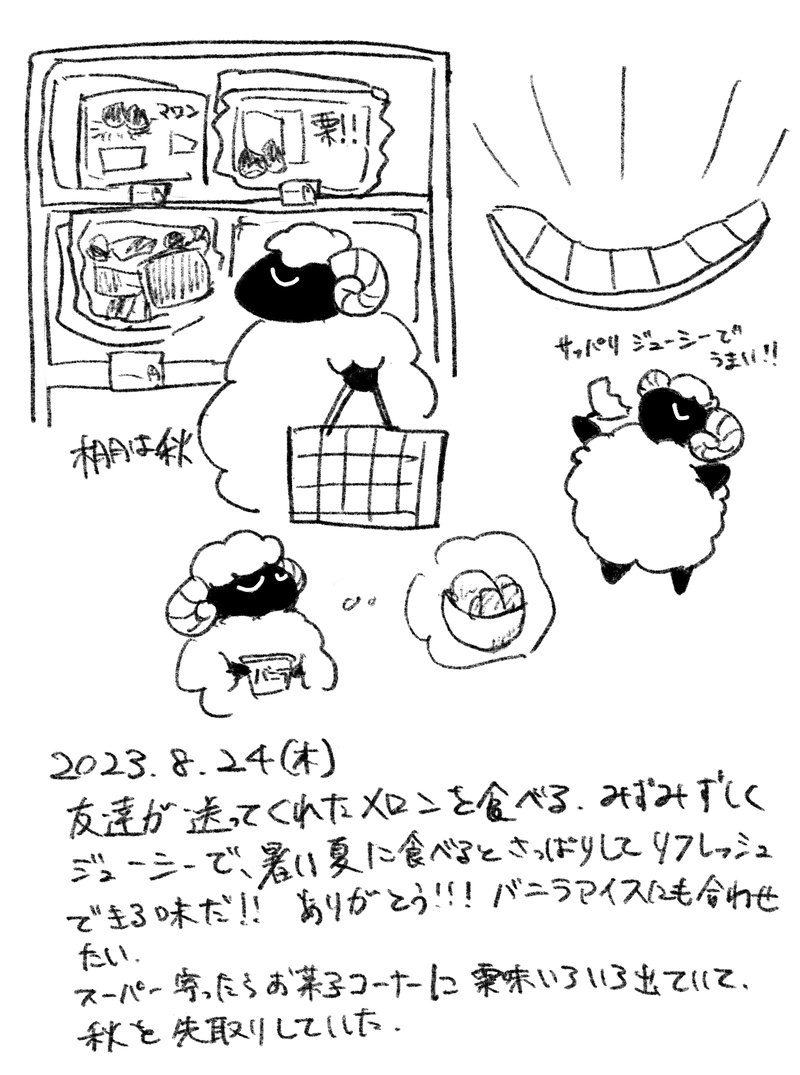 マロン
栗!!
一円
一円
サッパリ ジューシーで
うまい!!
一円
棚は秋
バニラ
2023.8.24(木)
友達が送ってくれたメロンを食べる。みずみずしく
ジューシーで、暑い夏に食べるとさっぱりしてリフレッシュ
できる味だ!! ありがとう!!! バニラアイスにも合わせ
たい.
スーパー寄ったらお菓子コーナーに栗味いろいろ出ていて、
秋を先取りしていた.